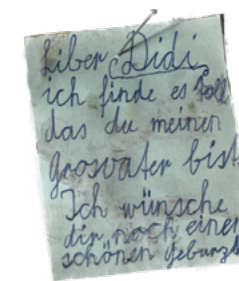 Liber Didi
ich finde es toll
das du meinen
grosvater bist
Ich wünsche
dir noch einen
schönen geburzt